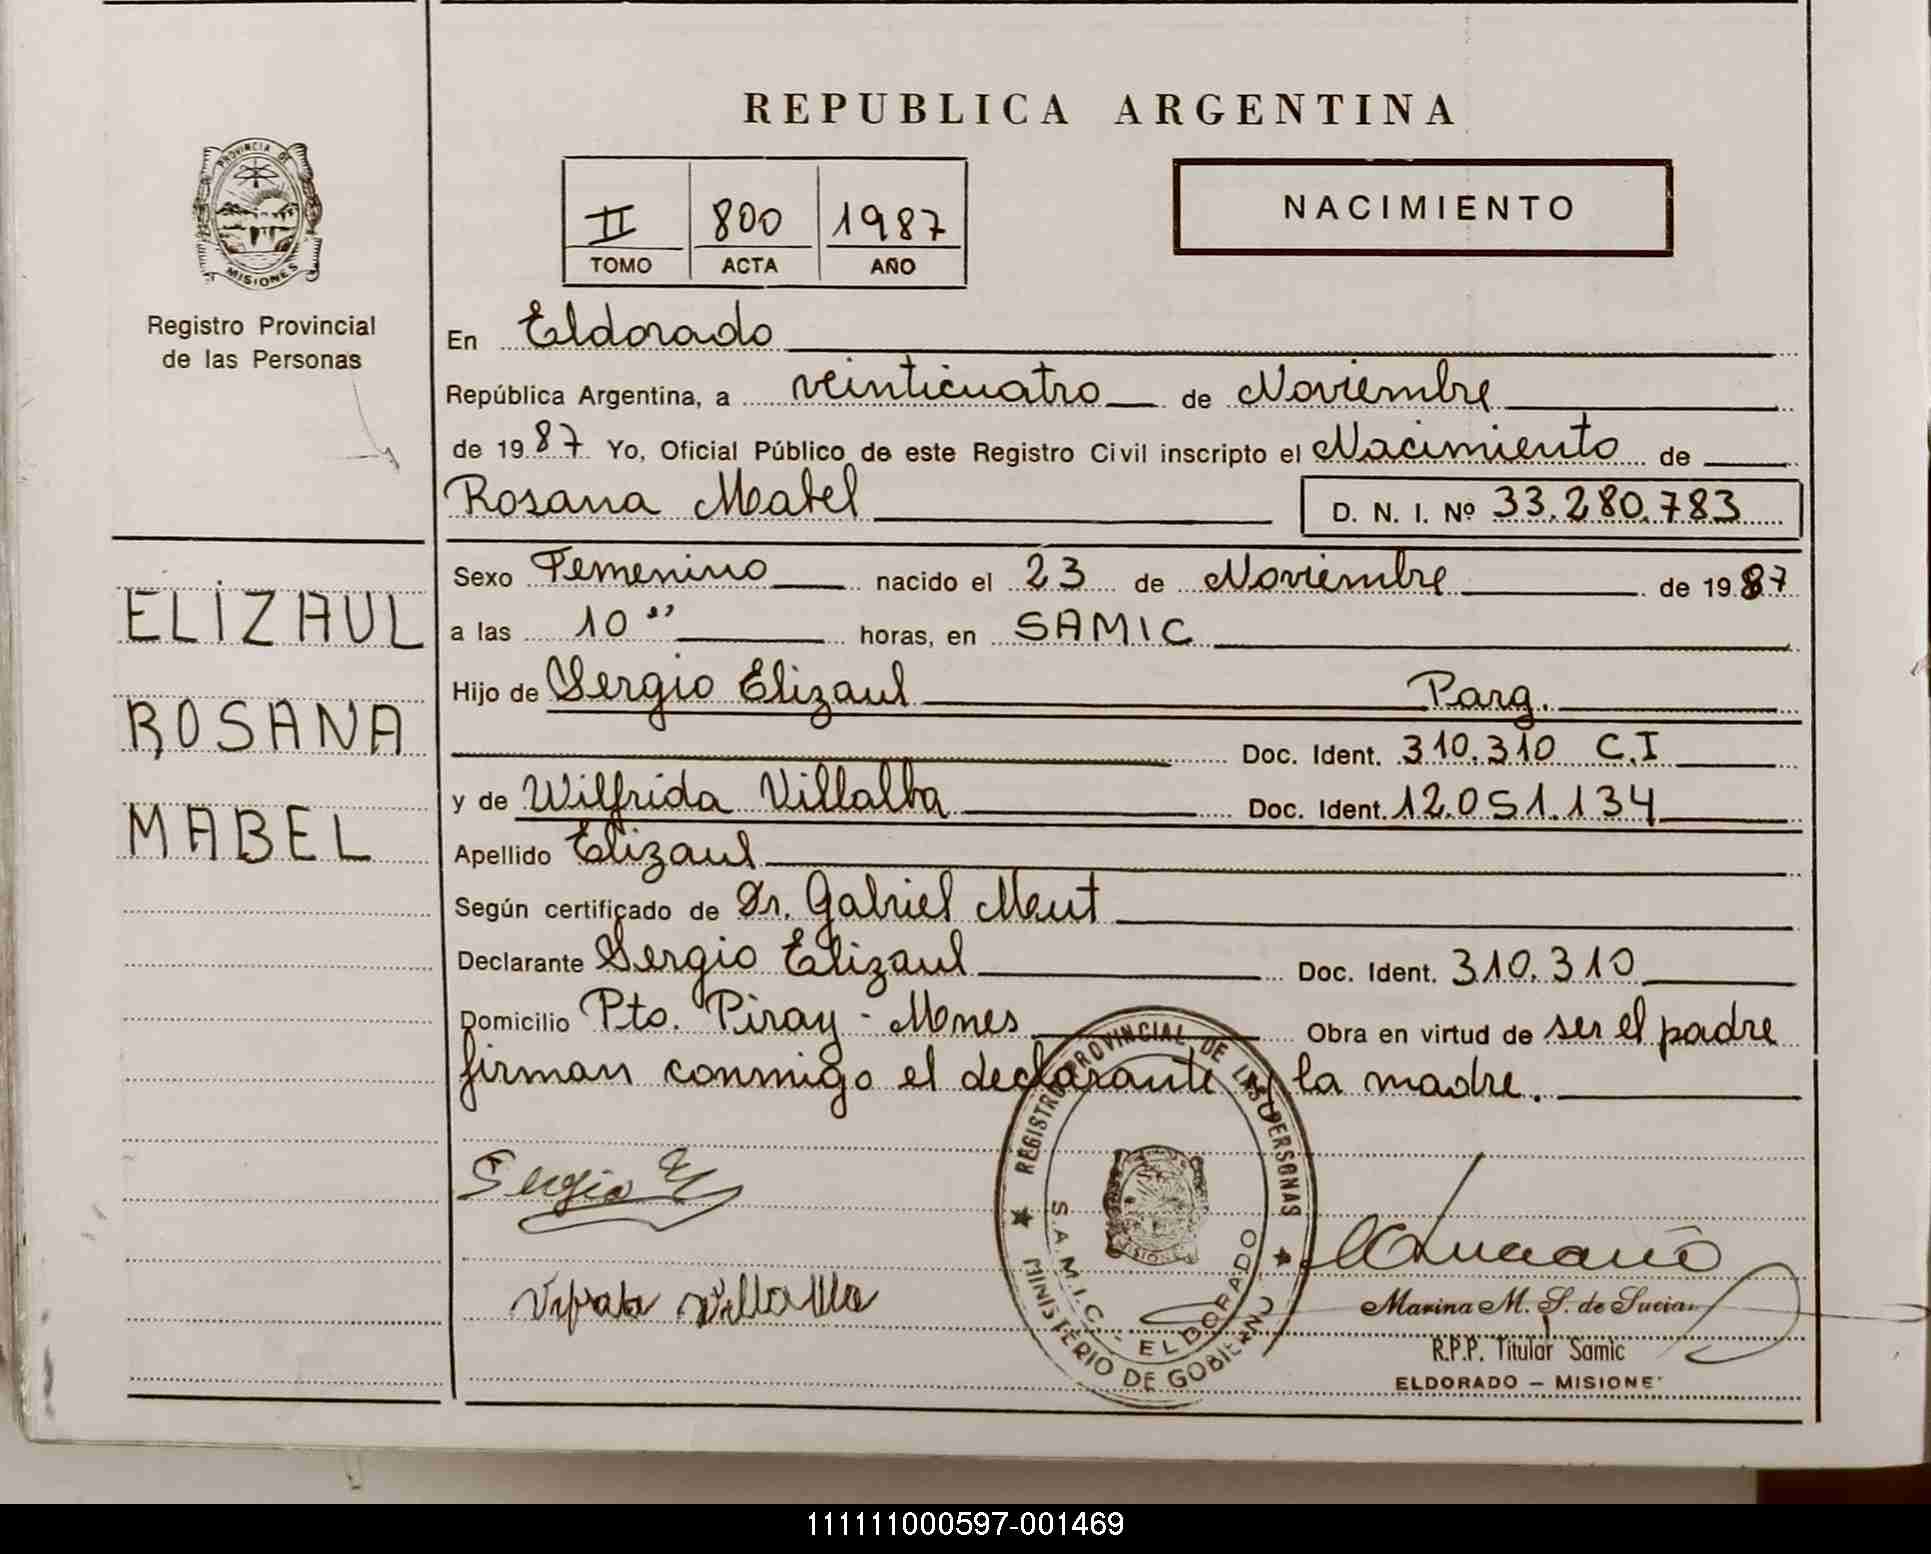 REPUBLICA ARGENTINA
PROVINCIA DE
MISIONES
Registro Provincial
de las Personas
II 800 1987
TOMO ACTA AÑO
NACIMIENTO
En Eldorado
República Argentina, a veinticuatro de Noviembre
de 1987 Yo, Oficial Público de este Registro Civil inscripto el Nacimiento de
Rosana Mabel D. N. I. Nº 33.280.783
ELIZAUL
ROSANA
MABEL
Sexo Femenino nacido el 23 de Noviembre de 1987
a las 10 horas, en SAMIC
Hijo de Sergio Elizaul Parg.
Doc. Ident. 310.310 C.I
y de Wilfrida Villalba Doc. Ident. 12.051.134
Apellido Elizaul
Según certificado de Dr. Gabriel Meut
Declarante Sergio Elizaul Doc. Ident. 310.310
Domicilio Pto. Piray - Mnes Obra en virtud de ser el padre
firman conmigo el declarante y la madre.
REGISTRO PROVINCIAL DE LAS PERSONAS
S.A.M.I.C. - ELDORADO
MINISTERIO DE GOBIERNO
Sergio
Villalba
Marina M. S. de
R.P.P. Titular Samic
ELDORADO - MISIONE
111111000597-001469